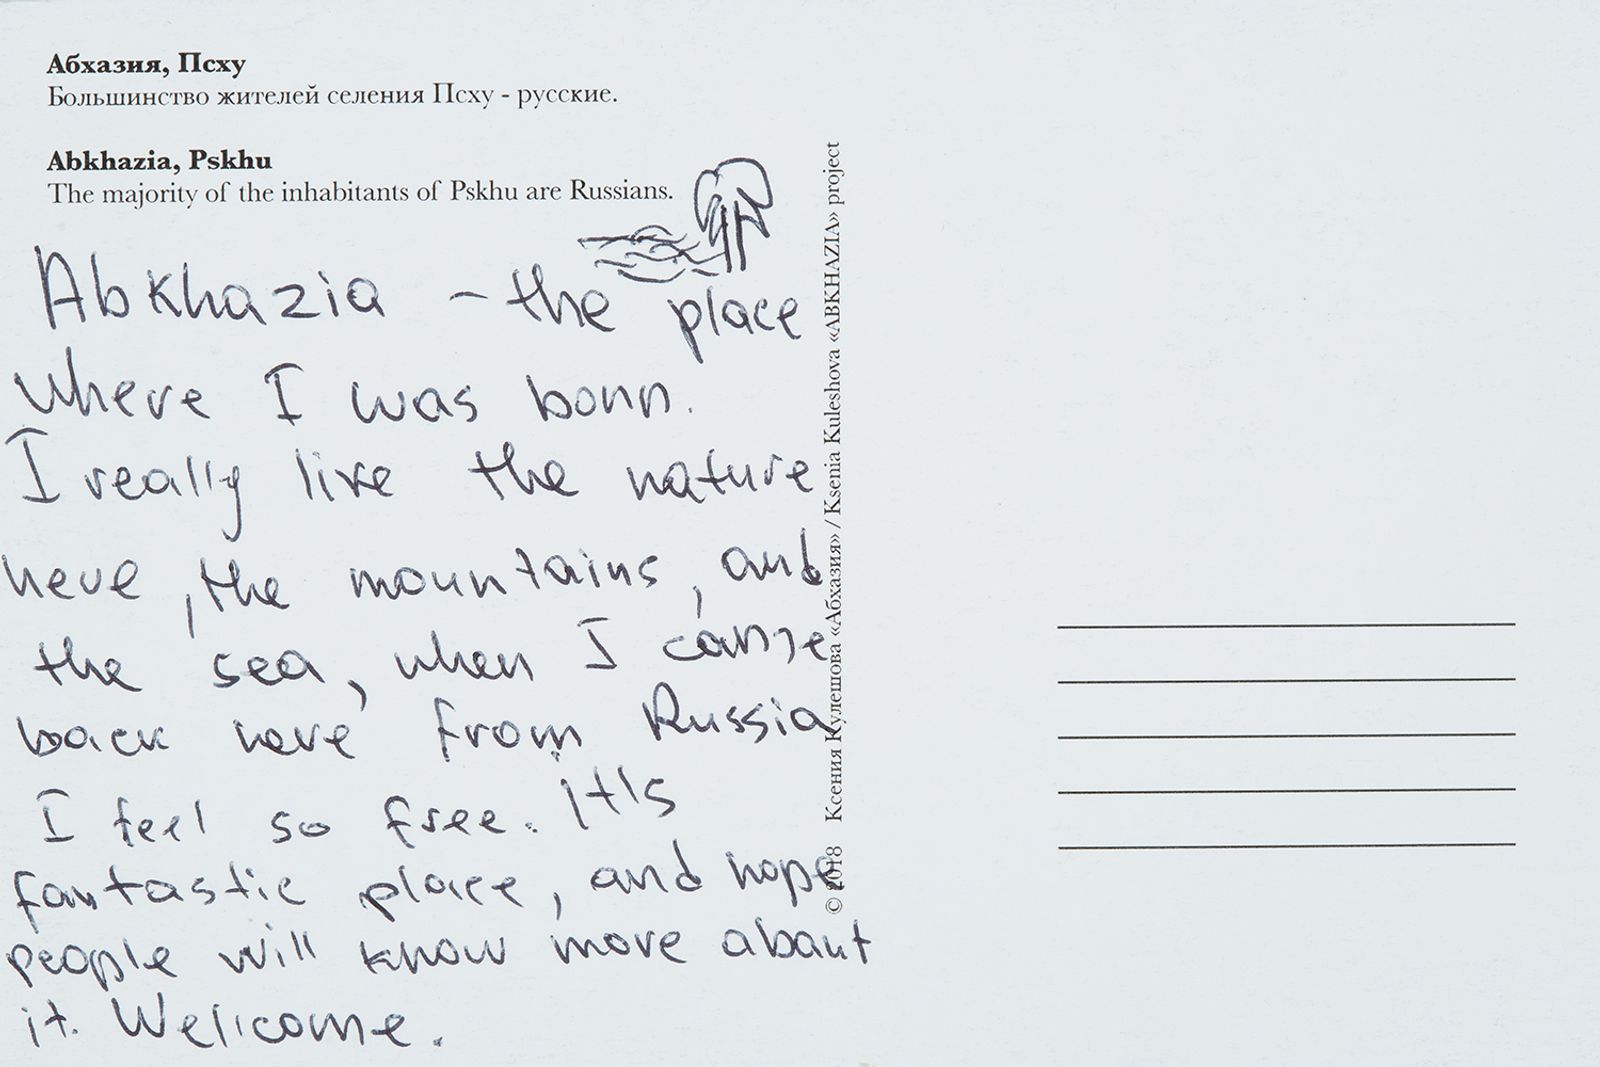 Абхазия, Псху
Большинство жителей селения Псху - русские.
Abkhazia, Pskhu
The majority of the inhabitants of Pskhu are Russians.
Abkhazia – the place
where I was born.
I really like the nature
here, the mountains, and
the sea, when I came
back here from Russia
I feel so free. It's
fantastic place, and hope
people will know more abaut
it. Welcome.
© 2018 Ксения Кулешова «Абхазия» / Ksenia Kuleshova «ABKHAZIA» project